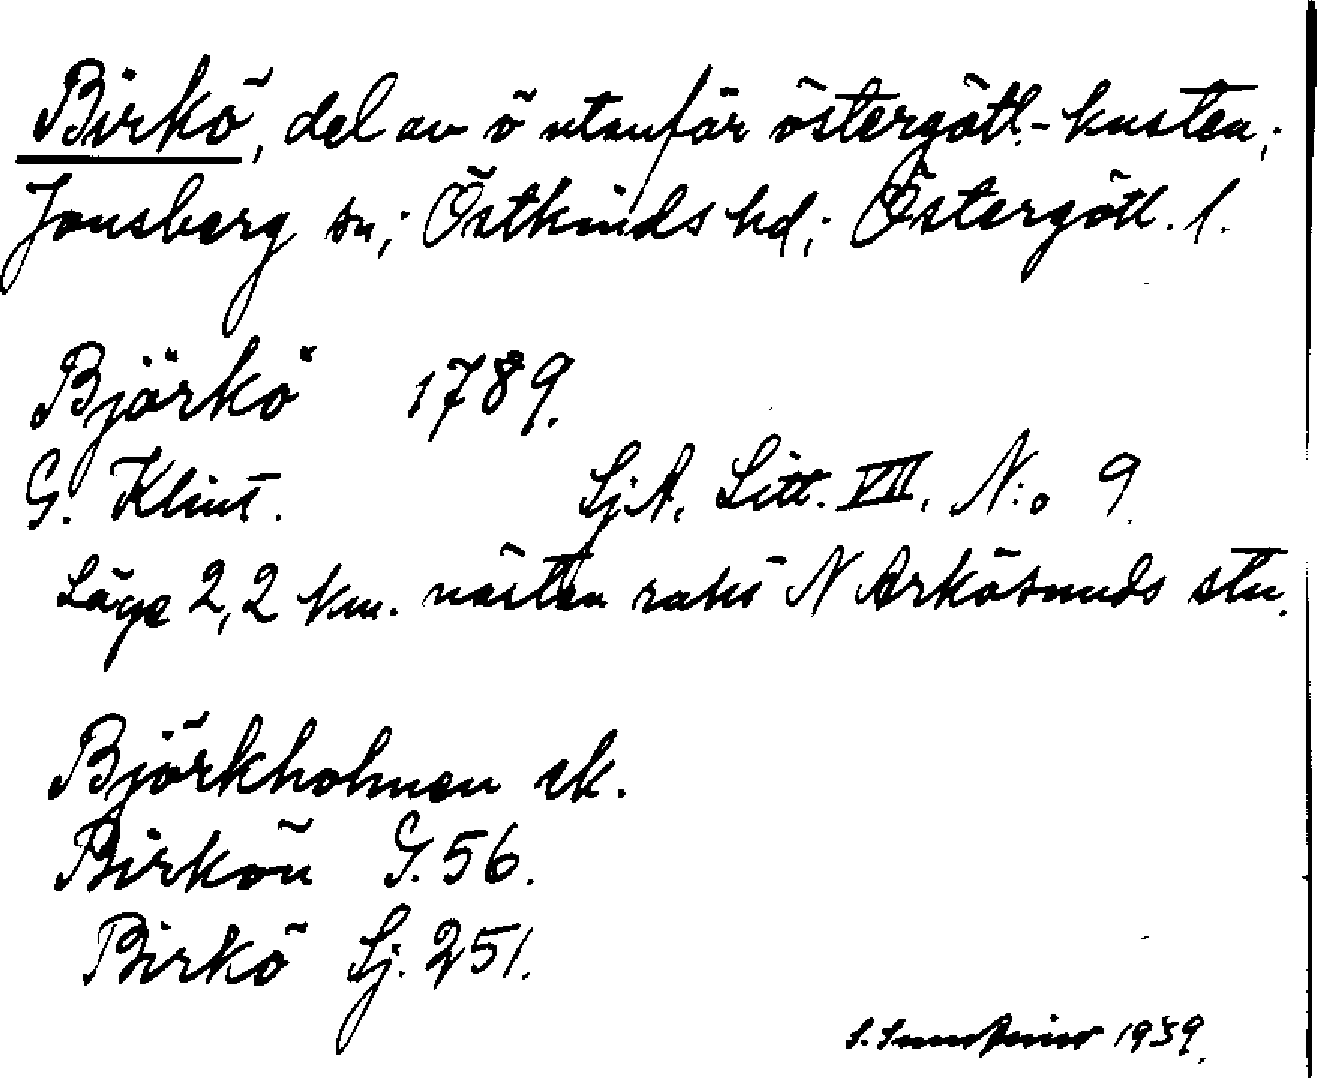 Birkö, del av ö utanför östergötl.-kusten;
Jonsberg sn; Östkinds hd; Östergötl. l.
Björkö 1789.
G. Klint. SjA, Litt. VII, N:o 9.
Läge 2,2 km. nästan rakt N Arkösunds stn.
Björkholmen ek.
Birkön G. 56.
Birkö Sj. 251.
1939.